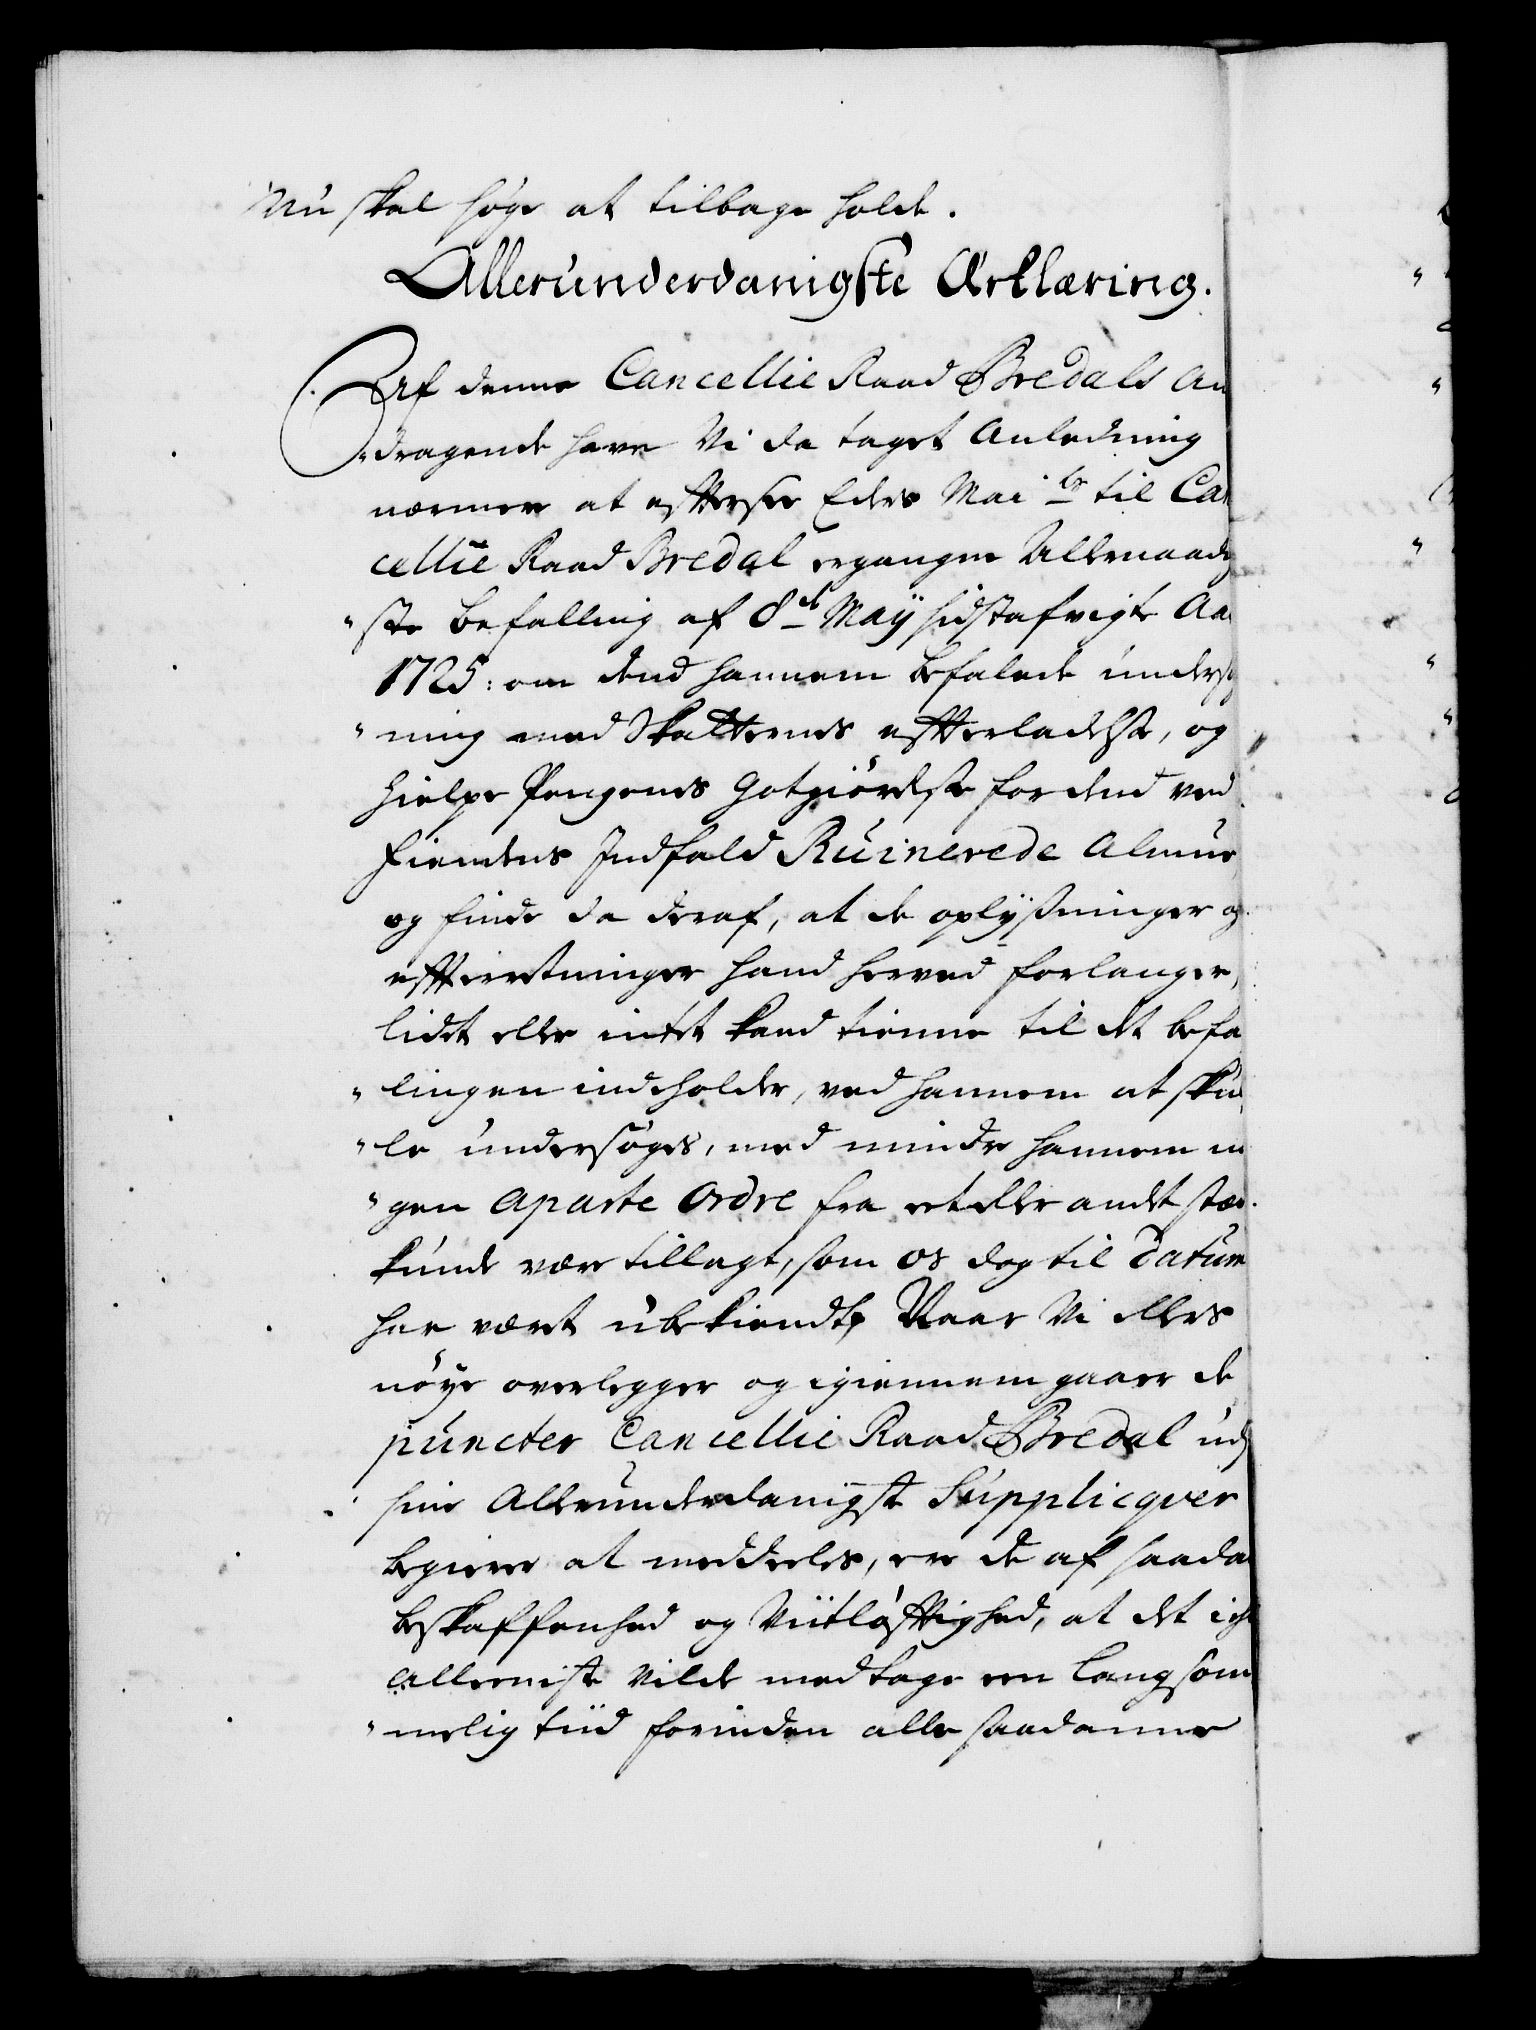 Nu skal søge at tilbage holde.
Allerunderdanigste Ærklæring.
Af denne Cancellie Raad Bredals An
dragende have Vi da taget Anledning
nærmere at eftersee Eders Maj:ts til Can
cellie Raad Bredal ergangne Allernaadig
"ste befalling af 8de Maÿ sidstafvigte Aar
1725: om dend hannem befalede undersøg
"ning med Skatternes efterladelse, og
hielpe Pengenes Gotgiørelse for dend ved
fiendens Indfald Ruinerede Almue,
og finde da deraf, at de oplysninger og
efterretninger hand herved forlanger,
lidet eller intet kand tienne til det befa
"lingen indeholder, ved hannem at skul
"le undersøges, med mindre hannem in
"gen aparte Ordre fra et eller andet stæd
kunde være tillagt, som os dog til Datum
har været ubekiendt, Naar Vi ellers
nøye overlegger og igiennemgaaer de
puncter Cancellie Raad Bredal udj
sin Allerunderdanigste Supplicqver
begierer at meddeeles, ere de af saadan
beskaffenhed og Viitløftighed, at det icke
alleeniste Vilde medtage een langsom
"melig tiid forinden alle saadanne